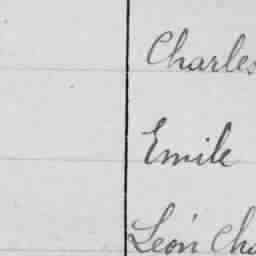 Charles
Emile
Léon Cha